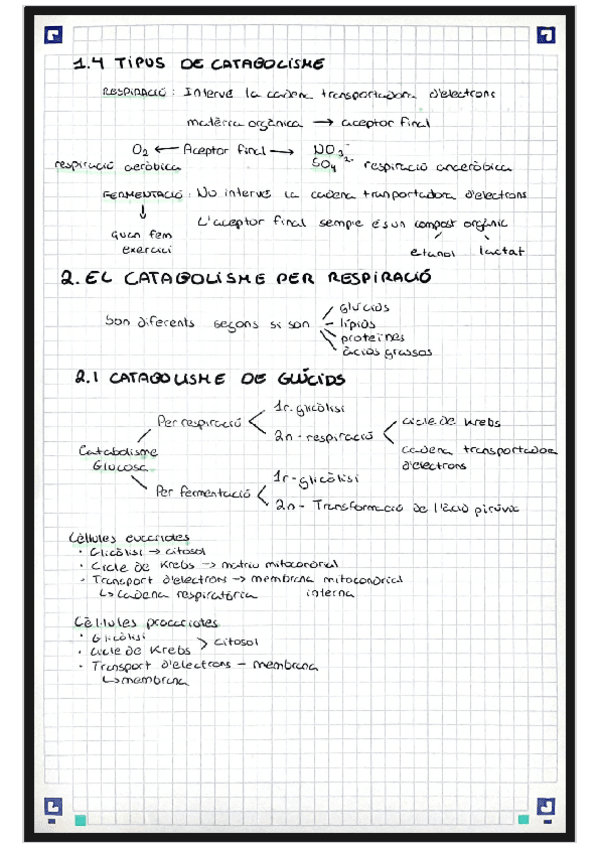 1.4 TIPUS DE CATABOLISME
RESPIRACIÓ: Intervé la cadena transportadora d'electrons
matèria orgànica → aceptor final
O2 ← Aceptor final → NO3-
SO4 2- respiració anceròbica
respiració aeròbica
FERMENTACIÓ: No intervé la cadena tranportadora d'electrons
↓ L'aceptor final sempre és un compost orgànic
quan fem
exercici
etanol lactat
2. EL CATABOLISME PER RESPIRACIÓ
Son diferents segons si son
glúcids
lípids
proteïnes
àcids grassos
2.1 CATABOLISME DE GLÚCIDS
Catabolisme
Glucosa
Per respiració
1r. glicòlisi
2n - respiració
cicle de Krebs
cadena transportadora
d'electrons
Per fermentació
1r - glicòlisi
2n - Transformació de l'àcid pirúvic
Cèl·lules eucariotes
· Glicòlisi → citosol
· Cicle de Krebs → matriu mitocondrial
- Transport d'electrons → membrana mitocondrial
↳ cadena respiratòria interna
Cèl·lules procariotes
· Glicòlisi
· cicle de Krebs > citosol
· Transport d'electrons - membrana
↳ membrana